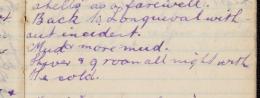 shells as a farewell.
Back to Longueval with-
out incident.
Mud & more mud.
Shiver & groan all night with
the cold.